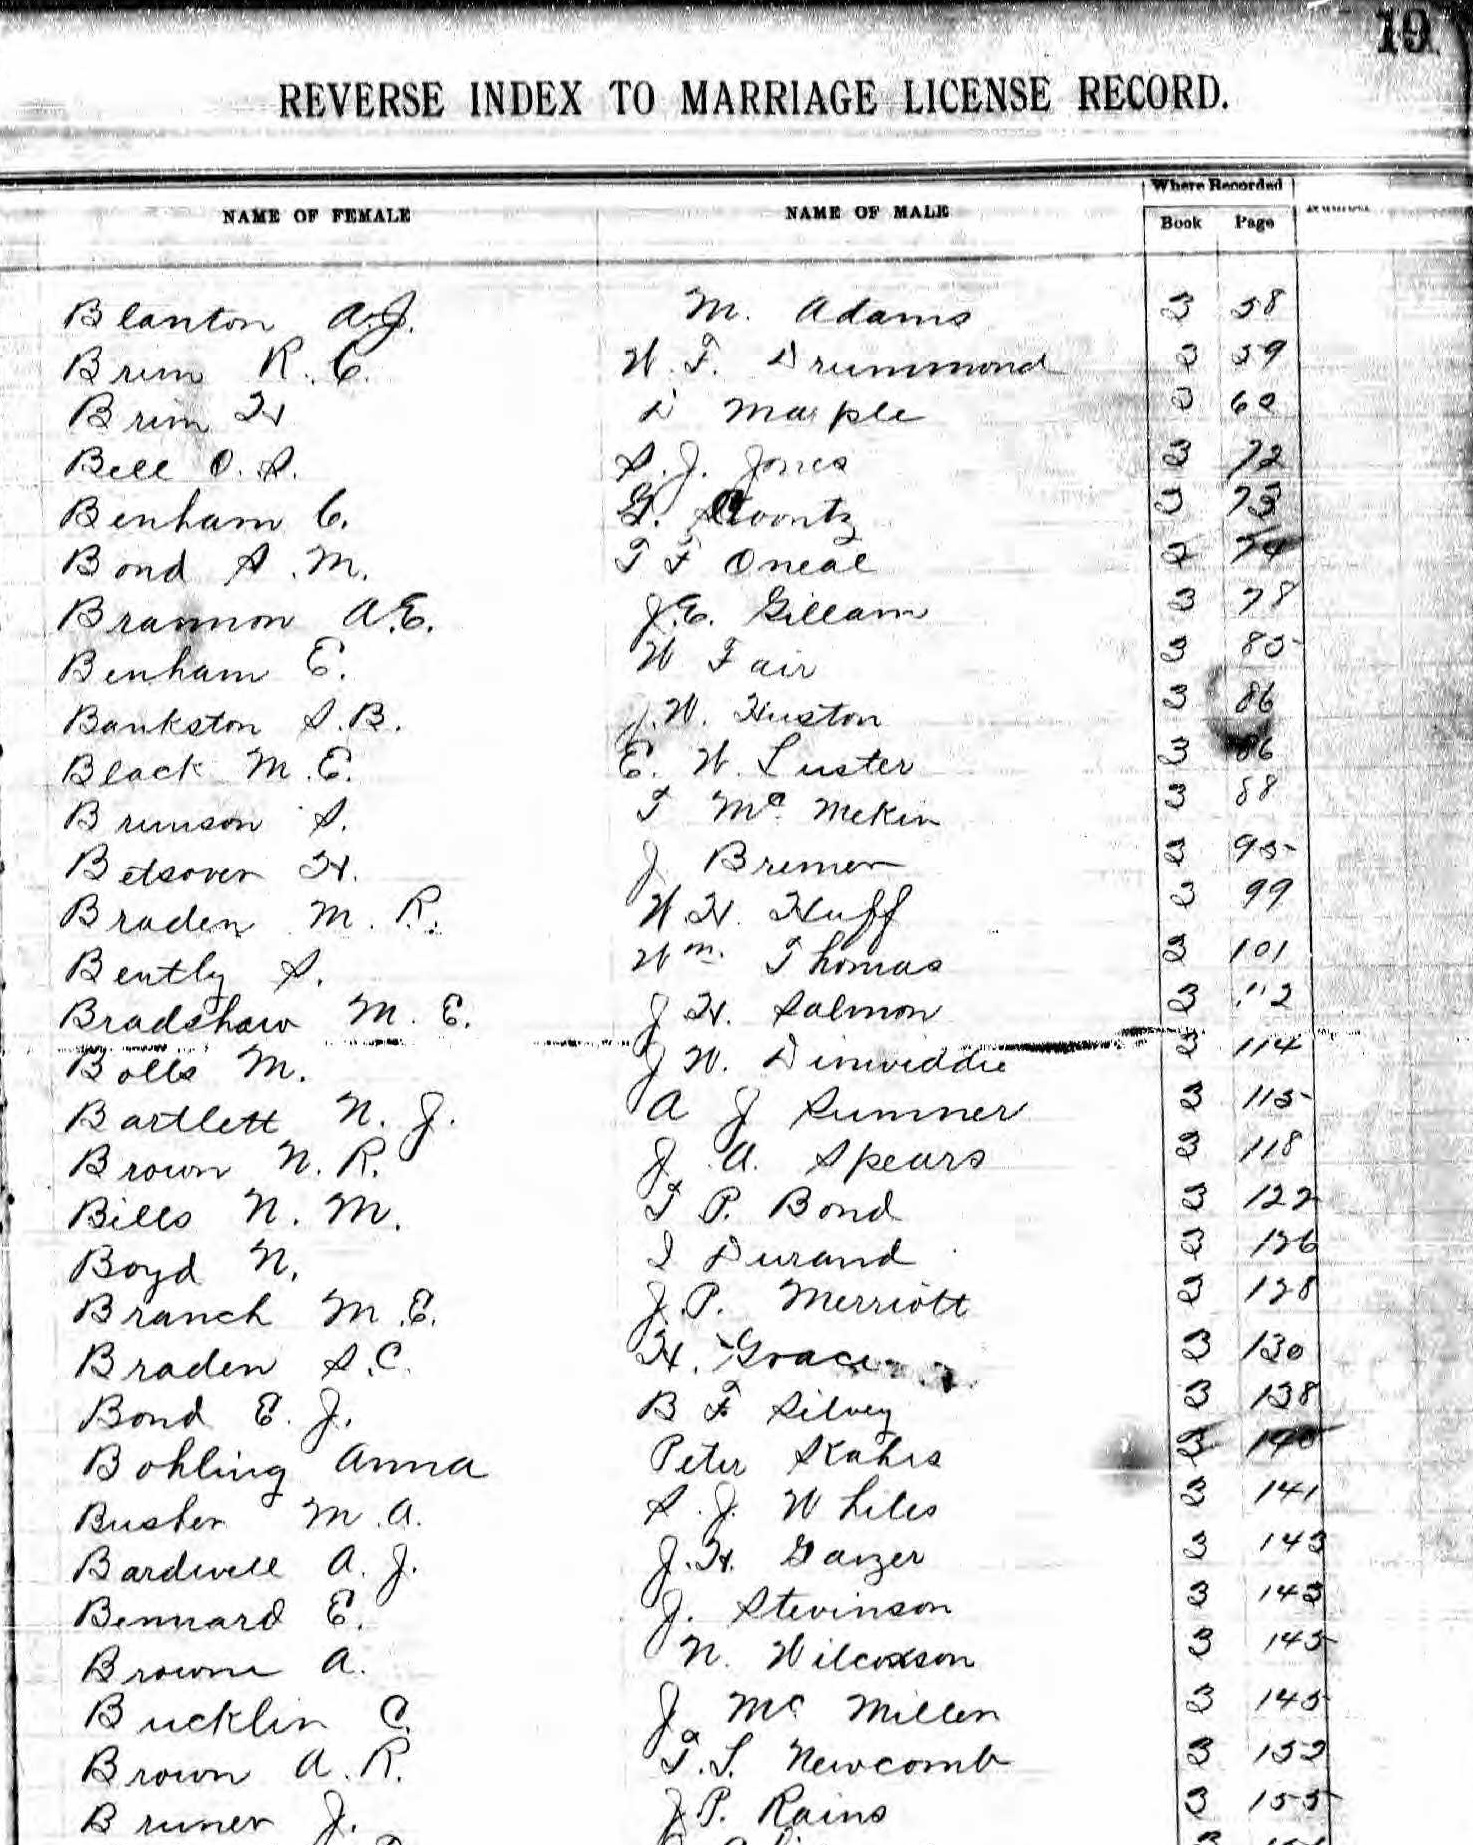 19
REVERSE INDEX TO MARRIAGE LICENSE RECORD.
Where Recorded
NAME OF FEMALE NAME OF MALE Book Page
Blanton A.J. M. Adams 3 58
Brim R.C. W.F. Drummond 3 59
Brim H D Marple 3 60
Bell O.S. S.J. Jones 3 72
Benham C. G. 3 73
Bond S.M. T F Oneal 74
Brannon A.E. J.E. Gillam 3 78
Benham E. W Fair 3 85
Bankston S.B. J.W. Huston 3 86
Black M.E. E. W. Luster 3 86
Brunson S. T Mc Mekin 3 88
Betsover H. J Bremer 3 95
Braden M.R. W H. Huff 3 99
Bently S. Wm. Thomas 3 101
Bradshaw M.E. J H. Salmon 3 112
Bolls M. J W. Dinwiddie 3 114
Bartlett N.J. A J Sumner 3 115
Brown N.R. J.A. Spears 3 118
Bills N.M. T P. Bond 3 122
Boyd N. I Durand 3 126
Branch M.E. J.P. Merriott 3 128
Braden S.C. H. Grace 3 130
Bond E.J. B F Silvey 3 138
Bohling Anna Peter Kahrs 3 140
Busher M.A. S.J. Whiles 3 141
Bardwell A.J. J.H. Ganzer 3 143
Bennard E. J. Stevinson 3 143
Browne A. N. Wilcoxson 3 145
Bucklin C. J Mc Millen 3 145
Brown A.R. T.L. Newcomb 3 152
Bruner J. J.P. Rains 3 155